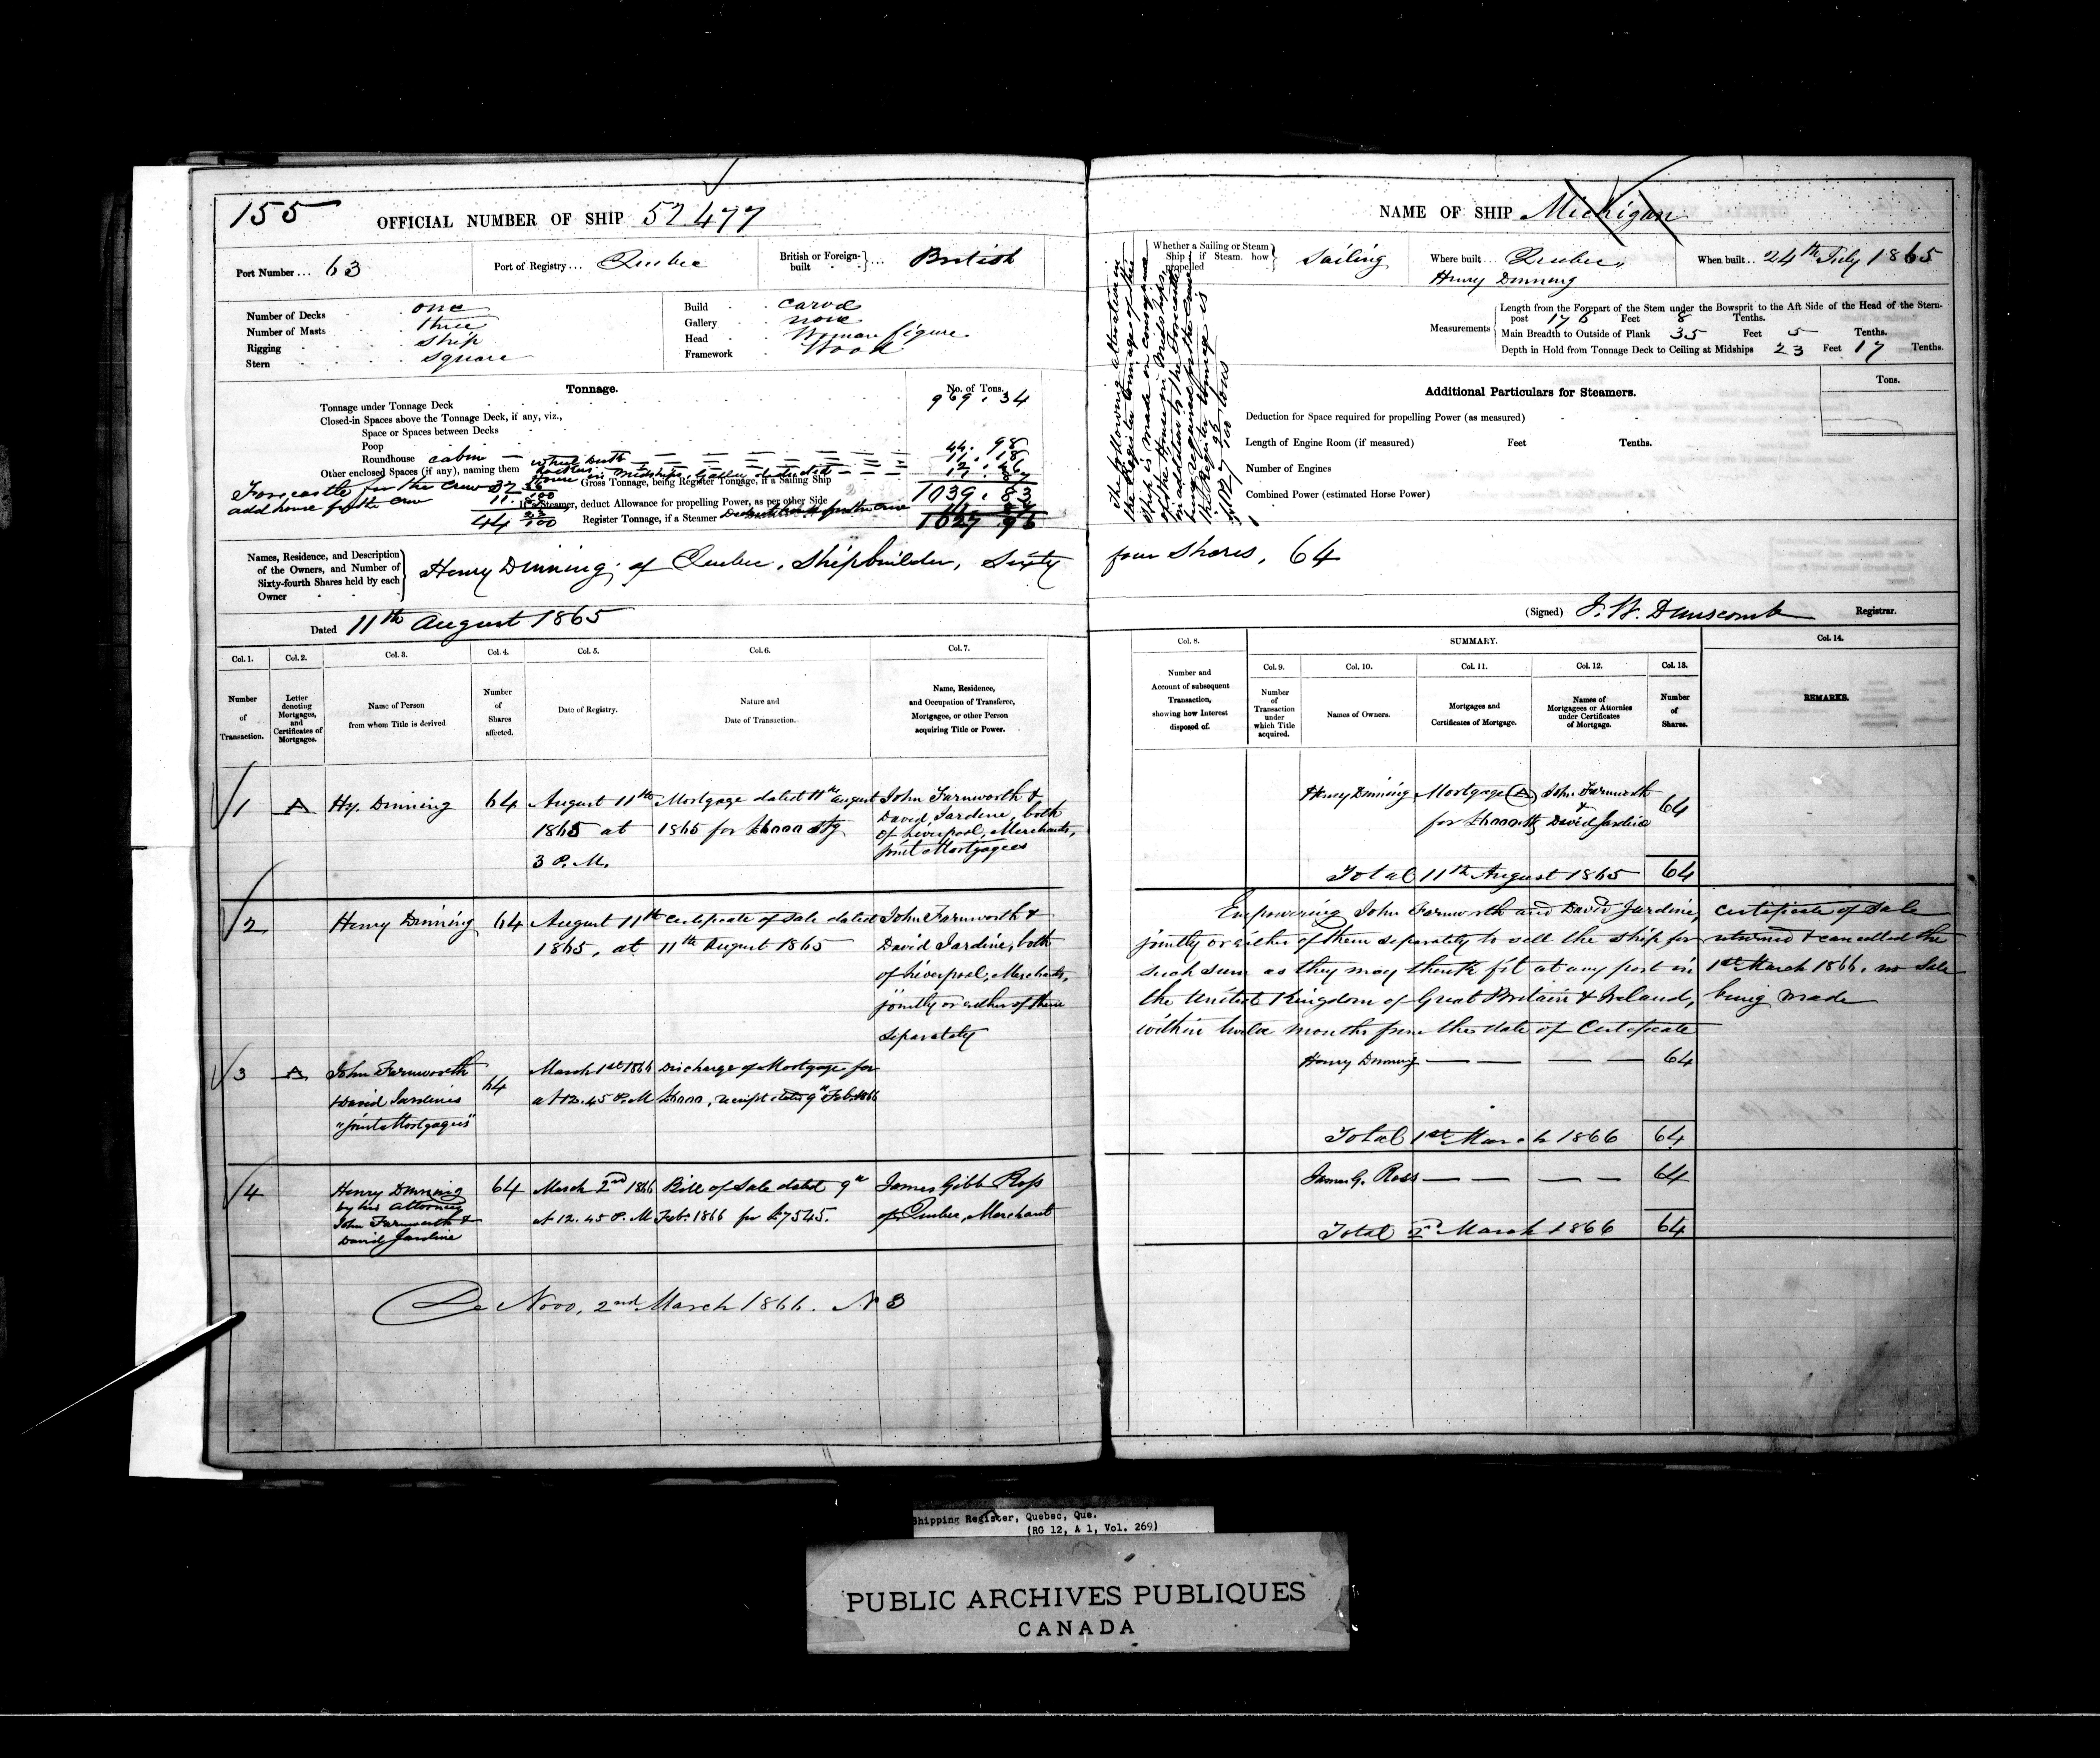 155
OFFICIAL NUMBER OF SHIP 52477
Port Number... 63
Port of Registry... Quebec
British or Foreign-built ... British
Number of Decks one
Number of Masts three
Rigging ship
Stern square
Build carvel
Gallery none
Head Woman figure
Framework Wood
Tonnage.
No. of Tons.
Tonnage under Tonnage Deck 969.34
Closed-in Spaces above the Tonnage Deck, if any, viz.,
Space or Spaces between Decks
Poop
Roundhouse cabin 44.98
Other enclosed Spaces (if any), naming them
House in Midships, Galley deducted
Forecastle for the crew
add house for the crew
44 23/100
Gross Tonnage, being Register Tonnage, if a Sailing Ship 1039.83
If a Steamer, deduct Allowance for propelling Power, as per other Side
Register Tonnage, if a Steamer
1027 96
Names, Residence, and Description of the Owners, and Number of Sixty-fourth Shares held by each Owner
Henry Dinning, of Quebec, Shipbuilder, Sixty
Dated 11th August 1865
Col. 1. Col. 2. Col. 3. Col. 4. Col. 5. Col. 6. Col. 7.
Number of Transaction.
Letter denoting Mortgages, and Certificates of Mortgages.
Name of Person from whom Title is derived
Number of Shares affected.
Date of Registry.
Nature and Date of Transaction.
Name, Residence, and Occupation of Transferee, Mortgagee, or other Person acquiring Title or Power.
1 A Hy. Dinning 64 August 11th Mortgage dated 11th August John Farnworth &
1865 at 1865 for £6000 stg David Jardine, both
3 P.M. of Liverpool, Merchants,
joint Mortgagees
2 Henry Dinning 64 August 11th Certificate of Sale dated John Farnworth &
1865, at 11th August 1865 David Jardine, both
of Liverpool, Merchants,
jointly or either of them
separately
3 A John Farnworth 64 March 1st 1866 Discharge of Mortgage for
& David Jardine at 12.45 P.M £6000, receipt dated 9th Feb. 1866
"joint Mortgagees"
4 Henry Dinning 64 March 2nd 1866 Bill of Sale dated 9th James Gibb Ross
by his Attorneys at 12.45 P.M Feb. 1866 for £7545. of Quebec, Merchant
John Farnworth &
David Jardine
De Novo, 2nd March 1866. No 3
NAME OF SHIP Michigan
Whether a Sailing or Steam Ship; if Steam, how propelled Sailing
Where built.. Quebec,
Henry Dinning
When built.. 24th July 1865
Measurements
Length from the Forepart of the Stem under the Bowsprit to the Aft Side of the Head of the Stern-post 176 Feet 8 Tenths.
Main Breadth to Outside of Plank 35 Feet 5 Tenths.
Depth in Hold from Tonnage Deck to Ceiling at Midships 23 Feet 17 Tenths.
The following alteration in
the Register tonnage of this
ship is made in consequence
of the House in Midships
in addition to the Forecastle
being required for the crew
the Register tonnage is
1027 96/100 tons
Additional Particulars for Steamers.
Tons.
Deduction for Space required for propelling Power (as measured)
Length of Engine Room (if measured) Feet Tenths.
Number of Engines
Combined Power (estimated Horse Power)
four Shares, 64
(Signed) J. W. Dunscomb Registrar.
Col. 8. SUMMARY. Col. 14.
Col. 9. Col. 10. Col. 11. Col. 12. Col. 13.
Number and Account of subsequent Transaction, showing how Interest disposed of.
Number of Transaction under which Title acquired.
Names of Owners.
Mortgages and Certificates of Mortgage.
Names of Mortgagees or Attornies under Certificates of Mortgage.
Number of Shares.
REMARKS.
Henry Dinning Mortgage (A) John Farnworth 64
for £6000 stg & David Jardine
Total 11th August 1865 64
Empowering John Farnworth and David Jardine, Certificate of Sale
jointly or either of them separately to sell the ship for returned & cancelled the
such sum as they may think fit at any port in 1st March 1866, no Sale
the United Kingdom of Great Britain & Ireland, being made
within twelve months from the date of Certificate
Henry Dinning 64
Total 1st March 1866 64
James G. Ross 64
Total 2nd March 1866 64
Shipping Register, Quebec, Que.
(RG 12, A 1, Vol. 269)
PUBLIC ARCHIVES PUBLIQUES
CANADA